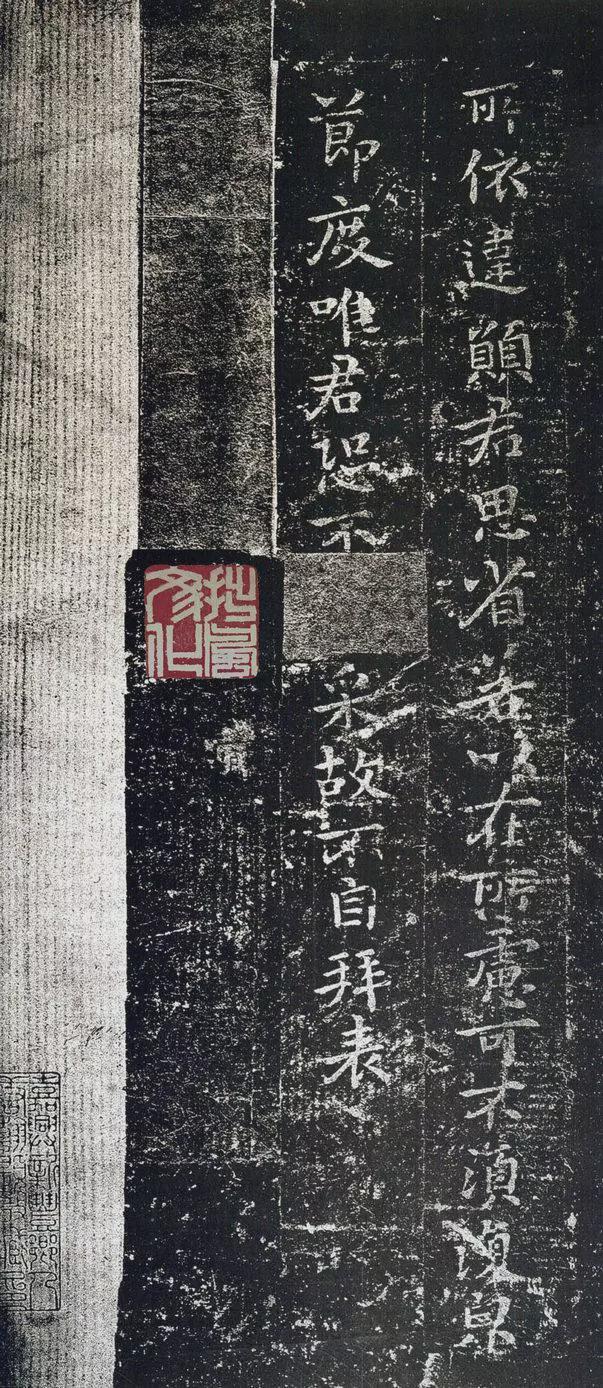 所依違願君思省若以在所慮可不須復皃
節度唯君恐不
采故不自拜表